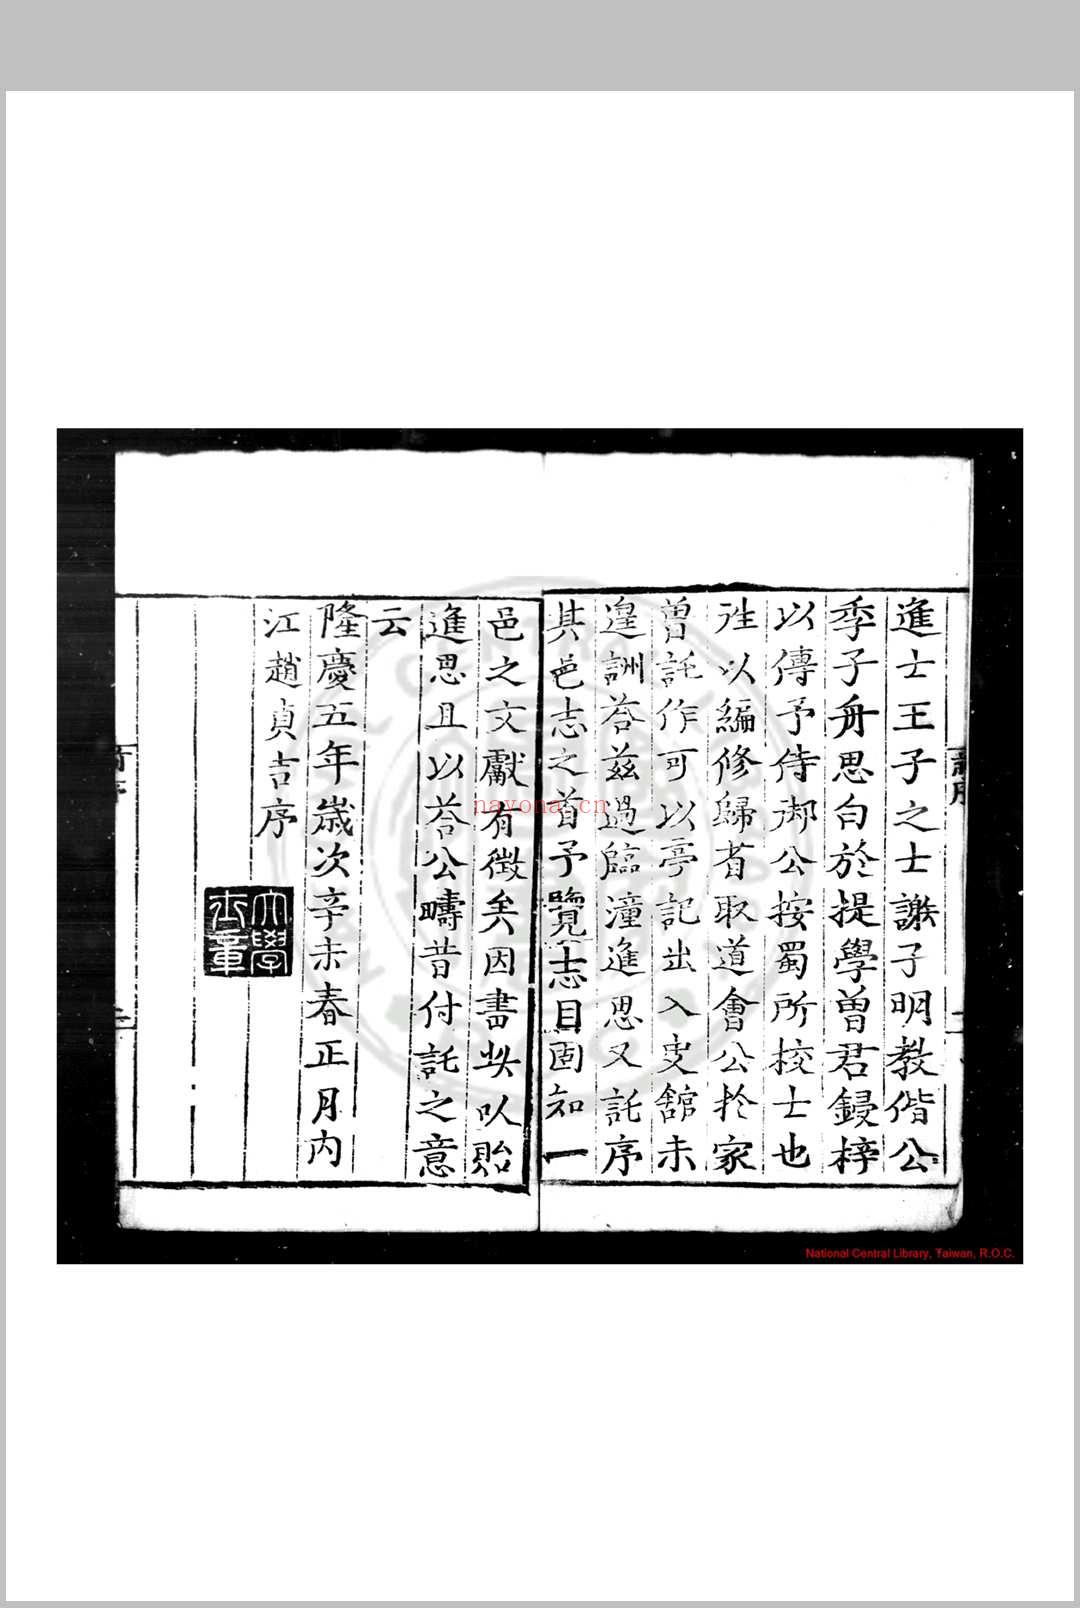 進士王子之士謙子明教偕公
季子舟思白於提學曾君鋟梓
以傳予侍御公按蜀所挍士也
徃以編修歸省取道會公於家
曽託作可以亭記出入史舘未
遑詶荅兹過臨潼進思又託序
其邑志之首予覽志目固知一
邑之文獻有徴矣因書此以貽
進思且以荅公疇昔付託之意
云
隆慶五年歲次辛未春正月内
江趙貞吉序
大學
士章
nayona.cn
National Central Library, Taiwan, R.O.C.